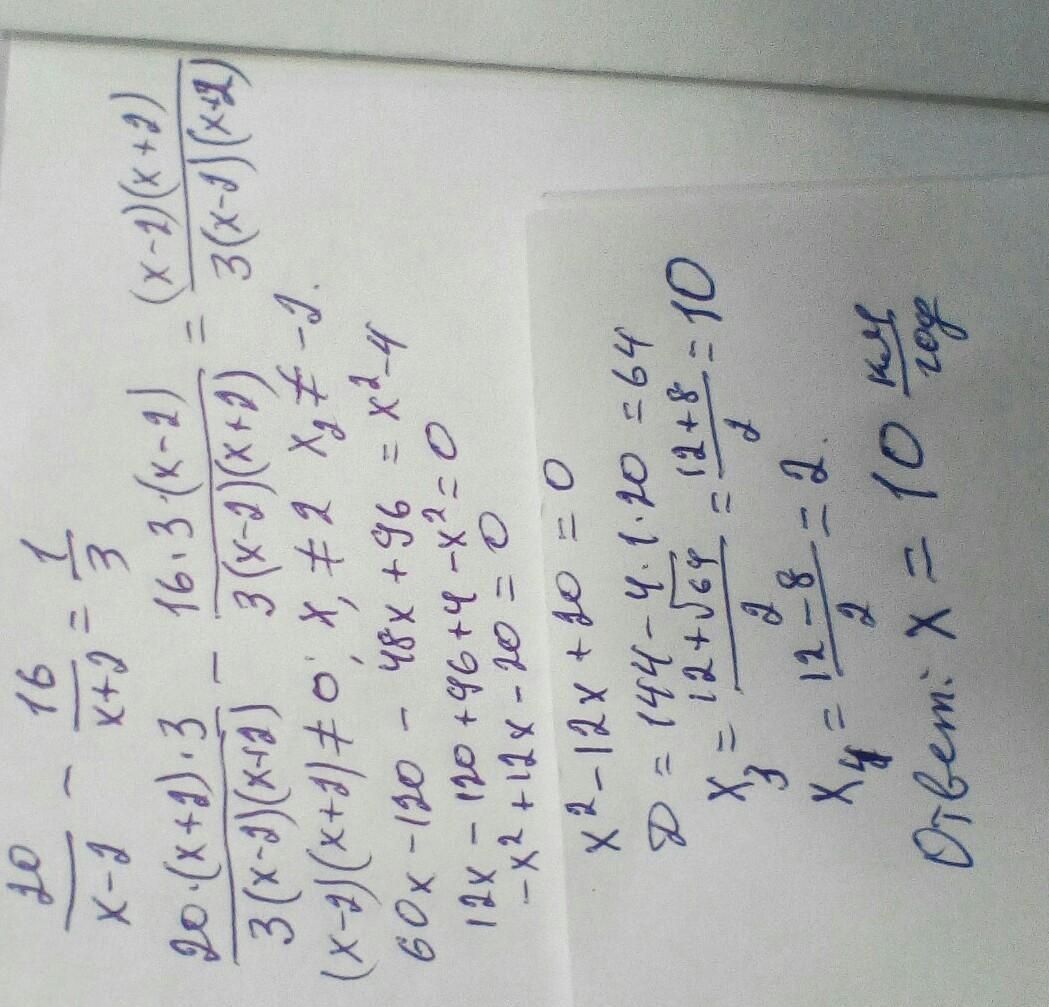 20/(x-2) - 16/(x+2) = 1/3
20·(x+2)·3/3(x-2)(x+2) - 16·3·(x-2)/3(x-2)(x+2) = (x-2)(x+2)/3(x-2)(x+2)
(x-2)(x+2)≠0; x₁≠2 x₂≠-2.
60x-120 - 48x+96 = x²-4
12x-120+96+4-x²=0
-x²+12x-20=0
x²-12x+20=0
D=144-4·1·20=64
x₃=(12+√64)/2=(12+8)/2=10
x₄=(12-8)/2=2.
Ответ: x=10 км/год